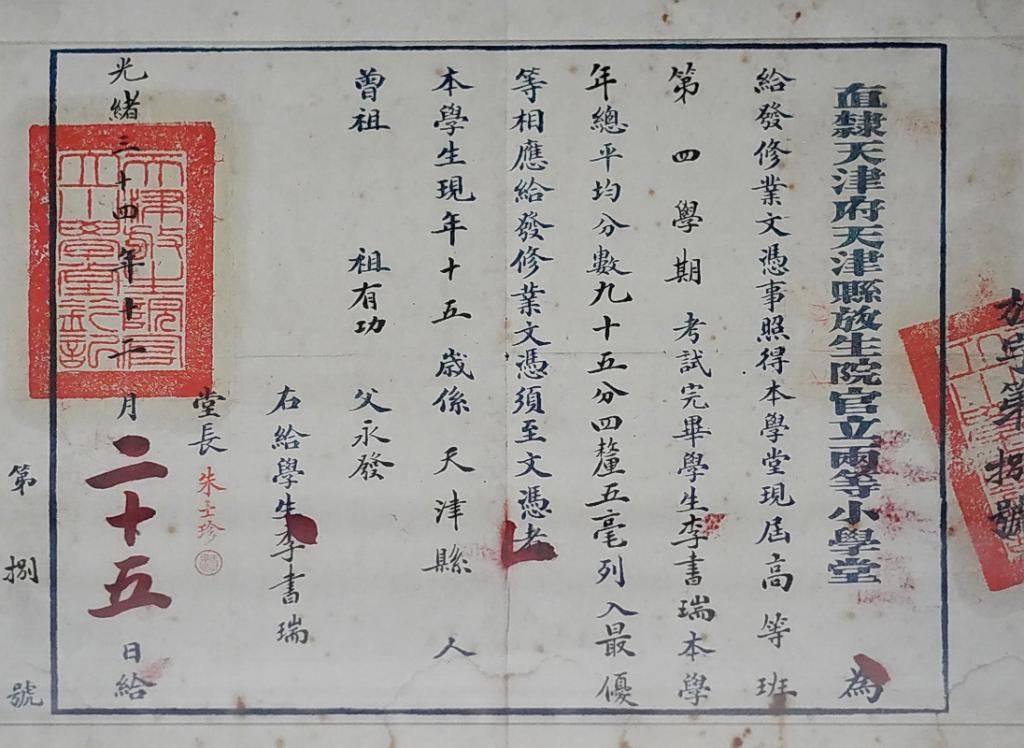 直隸天津府天津縣放生院官立兩等小學堂 為
給發修業文憑事照得本學堂現屆高等班
第四學期考試完畢學生李書瑞本學
年總平均分數九十五分四釐五毫列入最優
等相應給發修業文憑須至文憑者
本學生現年十五歲係天津縣人
曾祖 祖有功 父永發
右給學生李書瑞
堂長 朱士珍
光緒三十四年十二月二十五日給
第捌號
號第捌號